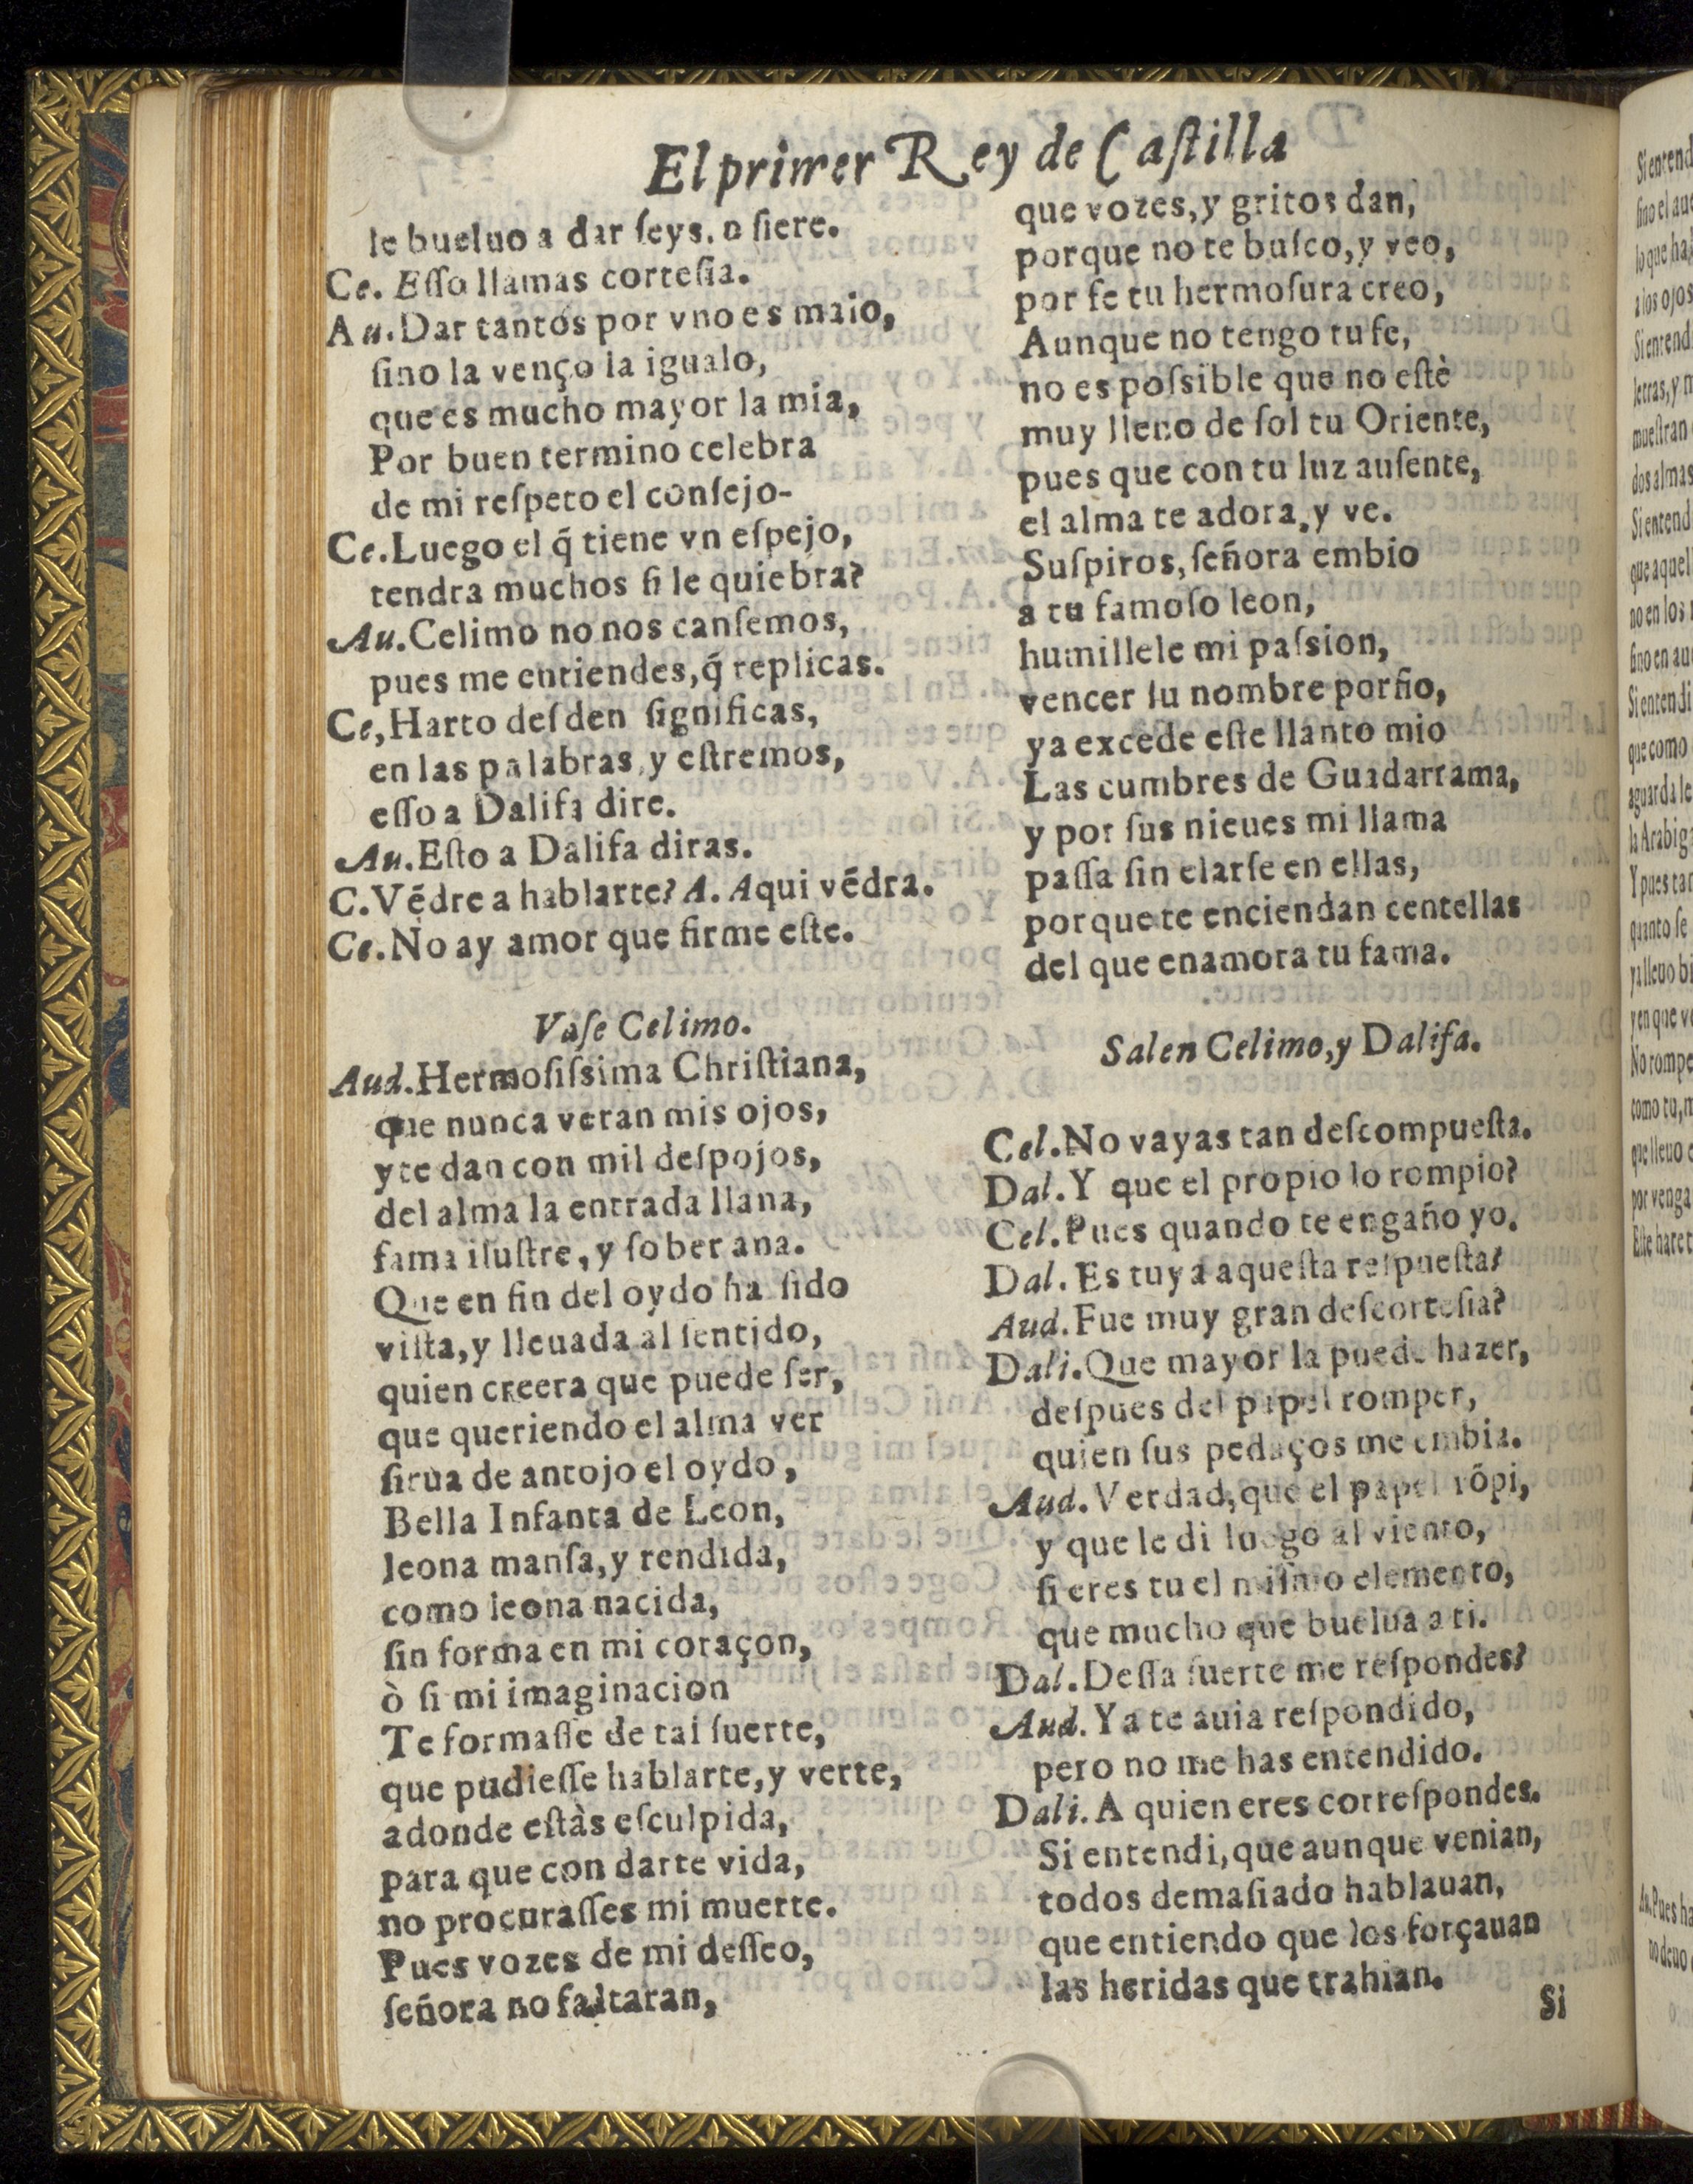 El primer Rey de Castilla
le bueluo a dar ſeys, o ſiere.
Ce. Eſſo llamas corteſia.
Au. Dar tantos por vno es malo,
ſino la venço la igualo,
que es mucho mayor la mia,
Por buen termino celebra
de mi reſpeto el conſejo-
Ce. Luego el q̃ tiene vn eſpejo,
tendra muchos ſi le quiebra?
Au. Celimo no nos canſemos,
pues me entiendes, q̃ replicas.
Ce, Harto deſden ſignificas,
en las palabras, y eſtremos,
eſſo a Dalifa dire.
Au. Eſto a Dalifa diras.
C. Vẽdre a hablarte? A. Aqui vẽdra.
Ce. No ay amor que firme eſte.
Vaſe Celimo.
Aud. Hermoſiſsima Chriſtiana,
que nunca veran mis ojos,
y te dan con mil deſpojos,
del alma la entrada llana,
fama iluſtre, y ſoberana.
Que en fin del oydo ha ſido
viſta, y lleuada al ſentido,
quien creera que puede ſer,
que queriendo el alma ver
ſirua de antojo el oydo,
Bella Infanta de Leon,
leona manſa, y rendida,
como leona nacida,
ſin forma en mi coraçon,
ò ſi mi imaginacion
Te formaſſe de tal ſuerte,
que pudieſſe hablarte, y verte,
adonde eſtàs eſculpida,
para que con darte vida,
no procuraſſes mi muerte.
Pues vozes de mi deſſeo,
ſeñora no faltaran,
que vozes, y gritos dan,
porque no te buſco, y veo,
por fe tu hermoſura creo,
Aunque no tengo tu fe,
no es poſsible que no eſtè
muy lleno de ſol tu Oriente,
pues que con tu luz auſente,
el alma te adora, y ve.
Suſpiros, ſeñora embio
a tu famoſo leon,
humillele mi paſsion,
vencer ſu nombre porfio,
ya excede eſte llanto mio
Las cumbres de Guadarrama,
y por ſus nieues mi llama
paſſa ſin elarſe en ellas,
porque te enciendan centellas
del que enamora tu fama.
Salen Celimo, y Dalifa.
Cel. No vayas tan deſcompueſta.
Dal. Y que el propio lo rompio?
Cel. Pues quando te engaño yo.
Dal. Es tuya aqueſta reſpueſta?
Aud. Fue muy gran deſcorteſia?
Dali. Que mayor la puede hazer,
deſpues del papel romper,
quien ſus pedaços me embia.
Aud. Verdad, que el papel rõpi,
y que le di luego al viento,
ſi eres tu el miſmo elemento,
que mucho que buelua a ti.
Dal. Deſſa ſuerte me reſpondes?
Aud. Ya te auia reſpondido,
pero no me has entendido.
Dali. A quien eres correſpondes.
Si entendi, que aunque venian,
todos demaſiado hablauan,
que entiendo que los forçauan
las heridas que trahian.
Si